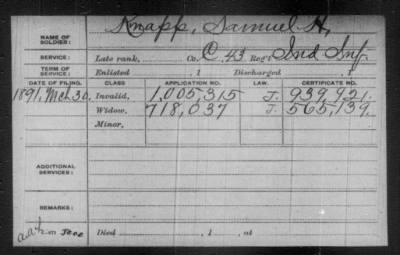 Knapp, Samuel H,
NAME OF SOLDIER:
SERVICE: Late rank, Co. C, 43 Reg't Ind Inf.
TERM OF SERVICE: Enlisted , 1 Discharged , 1
DATE OF FILING. CLASS APPLICATION NO. LAW. CERTIFICATE NO.
1891, Mch 30, Invalid, 1,005,315 J. 939,421.
Widow, 718,037 J. 565,139.
Minor,
ADDITIONAL SERVICES:
REMARKS:
Died , 1 , at